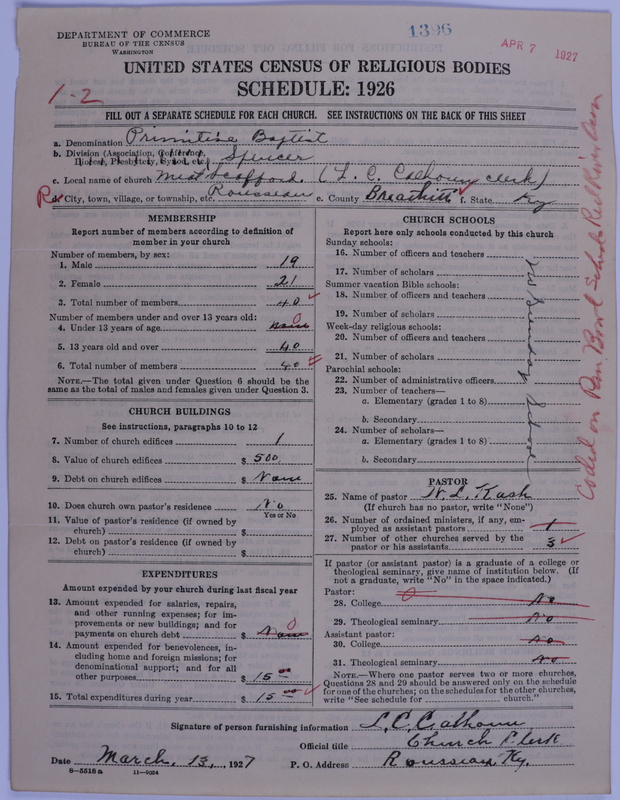 DEPARTMENT OF COMMERCE
BUREAU OF THE CENSUS
WASHINGTON
1396
APR 7 1927
UNITED STATES CENSUS OF RELIGIOUS BODIES
SCHEDULE: 1926
1-2
FILL OUT A SEPARATE SCHEDULE FOR EACH CHURCH. SEE INSTRUCTIONS ON THE BACK OF THIS SHEET
a. Denomination Primitive Baptist
b. Division (Association, Conference, Diocese, Presbytery, Synod, etc.) Spencer
c. Local name of church (L. C. Calhoun, clerk)
d. City, town, village, or township, etc. Rousseau e. County Breathitt f. State Ky
MEMBERSHIP
Report number of members according to definition of
member in your church
Number of members, by sex:
1. Male 19
2. Female 21
3. Total number of members 40
Number of members under and over 13 years old:
4. Under 13 years of age none 0
5. 13 years old and over 40
6. Total number of members 40
NOTE.—The total given under Question 6 should be
same as the total of males and females given under Question 3.
CHURCH BUILDINGS
See instructions, paragraphs 10 to 12
7. Number of church edifices 1
8. Value of church edifices $ 500
9. Debt on church edifices $ None
10. Does church own pastor's residence No
Yes or No
11. Value of pastor's residence (if owned by
church) $
12. Debt on pastor's residence (if owned by
church) $
EXPENDITURES
Amount expended by your church during last fiscal year
13. Amount expended for salaries, repairs,
and other running expenses; for im-
provements or new buildings; and for
payments on church debt $ None 0
14. Amount expended for benevolences, in-
cluding home and foreign missions; for
denominational support; and for all
other purposes $ 15 00
15. Total expenditures during year $ 15 00
CHURCH SCHOOLS
Report here only schools conducted by this church
Sunday schools:
16. Number of officers and teachers
17. Number of scholars
Summer vacation Bible schools:
18. Number of officers and teachers
19. Number of scholars
Week-day religious schools:
20. Number of officers and teachers
21. Number of scholars
Parochial schools:
22. Number of administrative officers
23. Number of teachers—
a. Elementary (grades 1 to 8)
b. Secondary
24. Number of scholars—
a. Elementary (grades 1 to 8)
b. Secondary
No Sunday School
PASTOR
25. Name of pastor W. L. Kash
(If church has no pastor, write "None")
26. Number of ordained ministers, if any, em-
ployed as assistant pastors 1
27. Number of other churches served by the
pastor or his assistants 3
If pastor (or assistant pastor) is a graduate of a college or
theological seminary, give name of institution below. (If
not a graduate, write "No" in the space indicated.)
Pastor:
28. College 0 No
29. Theological seminary No
Assistant pastor:
30. College No
31. Theological seminary No
NOTE.—Where one pastor serves two or more churches,
Questions 28 and 29 should be answered only on the schedule
for one of the churches; on the schedules for the other churches,
write "See schedule for church."
Signature of person furnishing information L. C. Calhoun
Official title Church Clerk
Date March, 13, 1927 P. O. Address Rousseau Ky.
8-5518a 11-9024